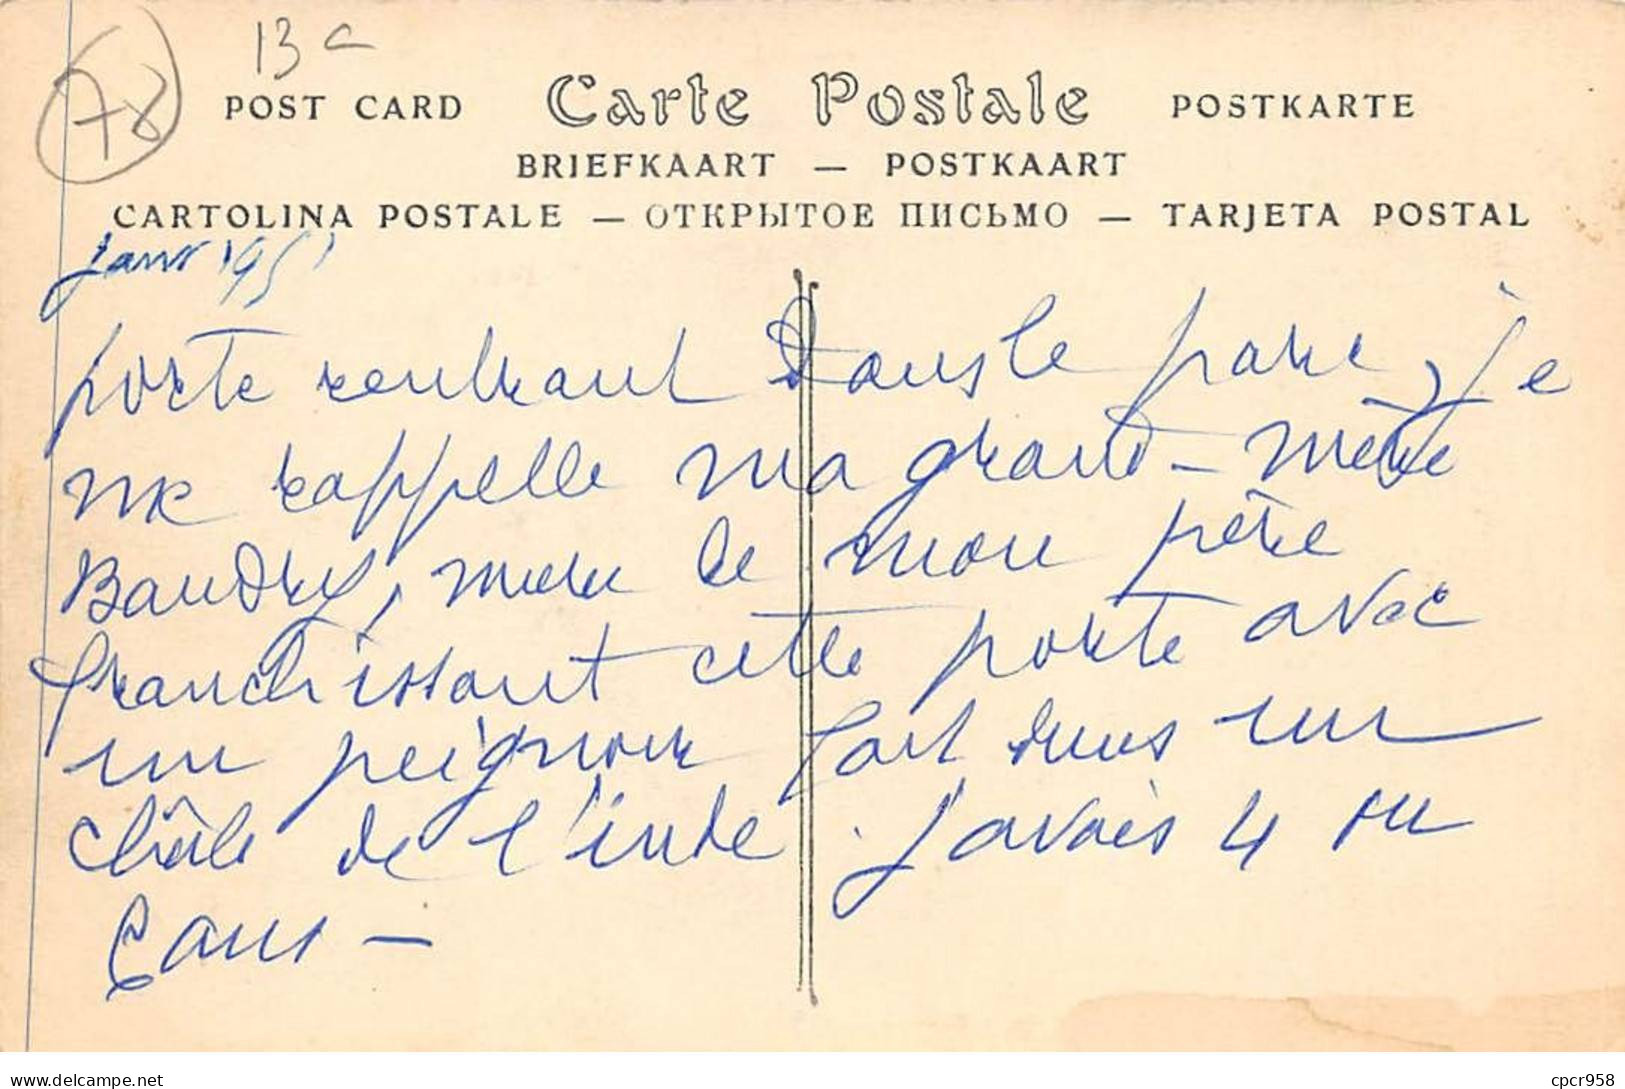 13 c
78
POST CARD Carte Postale POSTKARTE
BRIEFKAART — POSTKAART
CARTOLINA POSTALE — ОТКРЫТОЕ ПИСЬМО — TARJETA POSTAL
Janv 1951
porte rentrant dans le parc, je
me rappelle ma grand-mère
Baudry, mère de mon père
franchissant cette porte avec
un peignoir fait dans un
châle de l'inde. J'avais 4 ou
5 ans —
delcampe.net
cpcr958